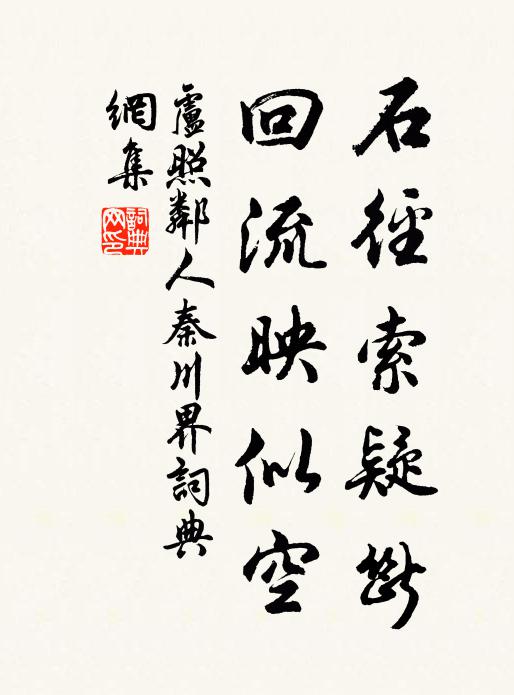 石徑索疑斷
回流映似空
盧照鄰人秦川界詞典
網集
詞典
网印